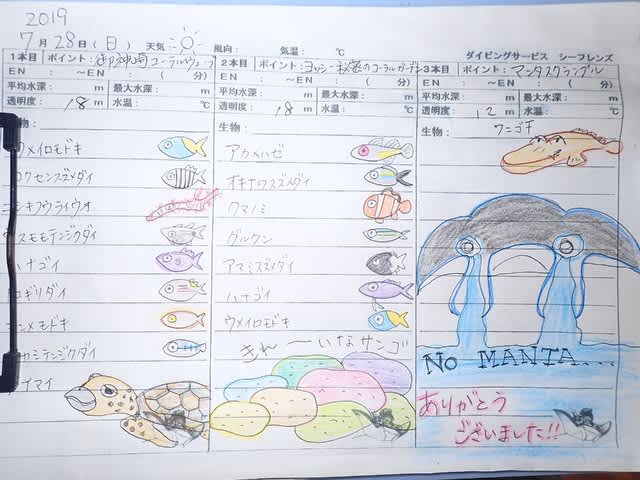 2019
7月28日(日) 天気 風向: 気温: ℃
ダイビングサービス シーフレンズ
1本目 ポイント:
EN : ～EN : ( 分)
平均水深: m 最大水深: m
透明度: 18 m 水温: ℃
生物:
メイロモドキ
クセンスズメダイ
キフウライウオ
スモモテンジクダイ
ハナゴイ
ロギリダイ
ンメモドキ
テンジクダイ
マイ
2本目 ポイント: ヨッシー秘密のコーラルガーデン
EN : ～EN : ( 分)
平均水深: m 最大水深: m
透明度: 18 m 水温: ℃
生物:
アカメハゼ
オキナワスズメダイ
クマノミ
グルクン
アマミスズメダイ
ハナゴイ
ウメイロモドキ
きれ〜いなサンゴ
3本目 ポイント: マンタスクランブル
EN : ～EN : ( 分)
平均水深: m 最大水深: m
透明度: 12 m 水温: ℃
生物: ワニゴチ
NO MANTA...
ありがとう
ございました!!